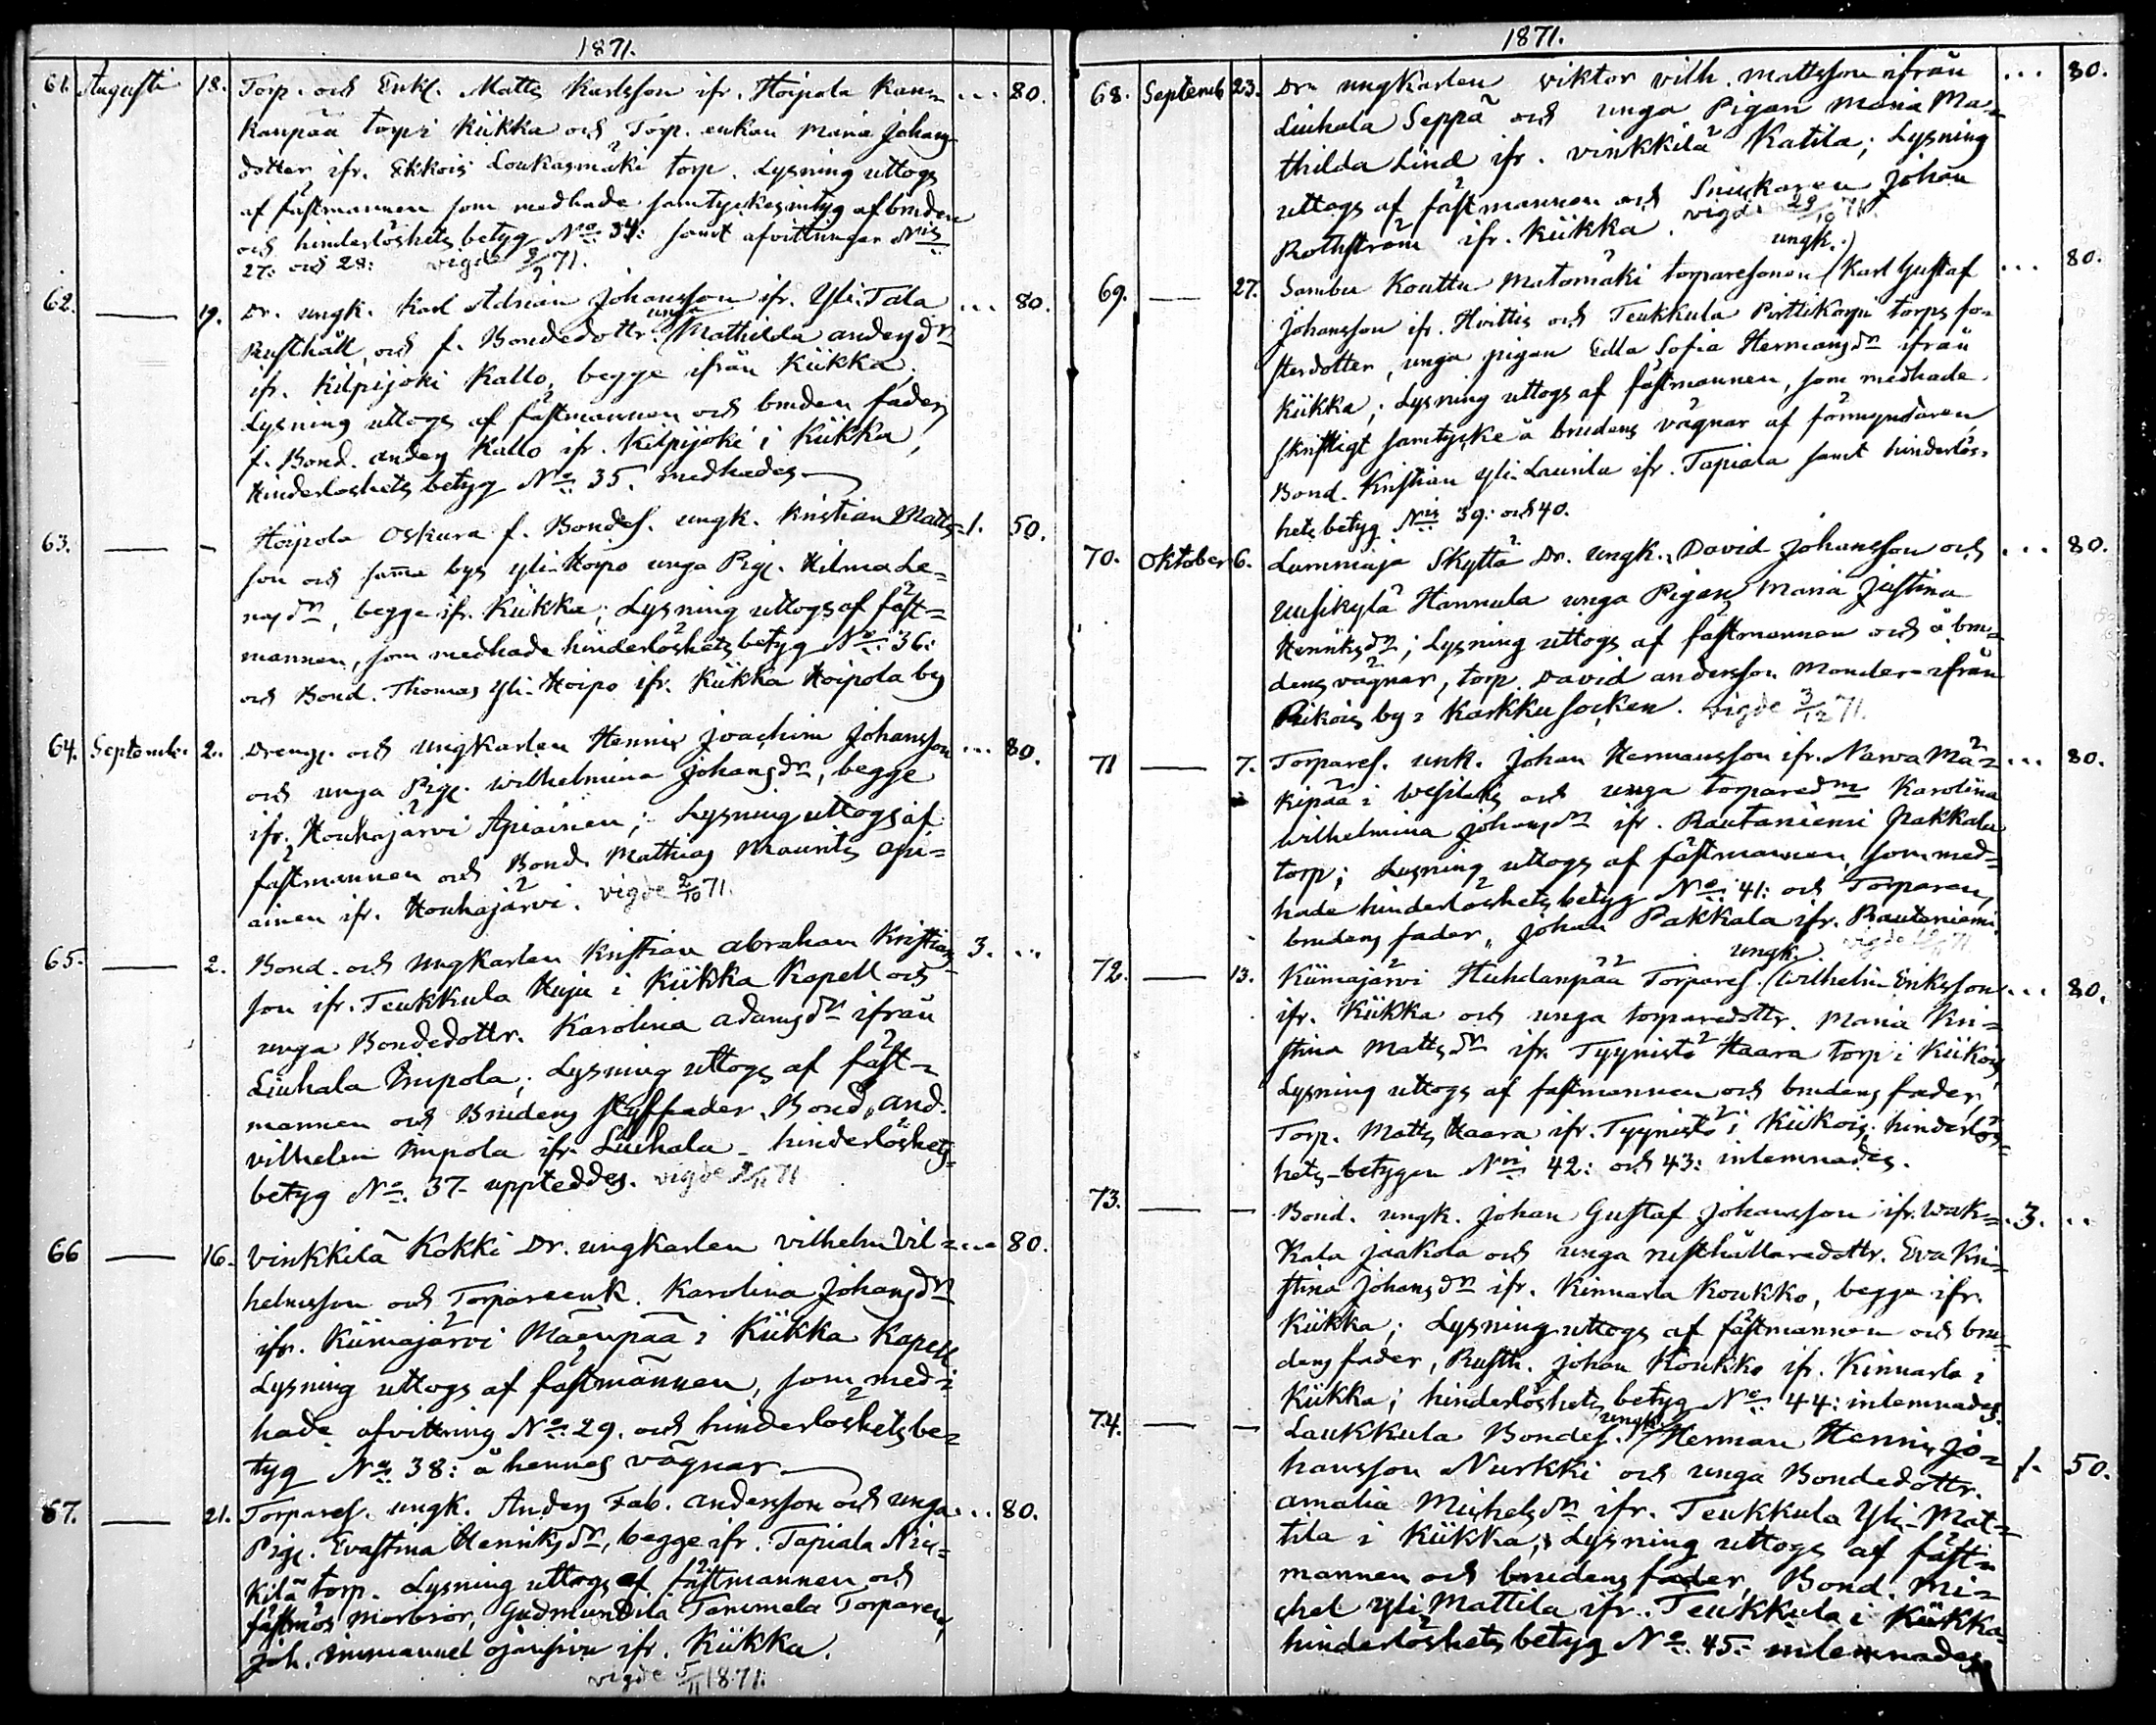 1871.
61. Augusti 18. Torp. och Enkl. Matts Karlsson ifr. Hoipola Kan= ... 80.
kanpää torp i Kiikka och Torp. enkan Maria Johans
dotter ifr. Ekkois Loukasmäki torp. Lysning uttogs
af fästmannen som medhade samtyckesintyg af bruden
och hinderlöshets betyg No: 34: samt afvittringar Nris
27: och 28: vigde 2/9 71.
62. — 19. Dr. ungk. Karl Adrian Johansson ifr. Yli-Tala ... 80.
unga
Rusthåll, och f. Bondedottr. Mathilda Andersdr
ifr. Kilpijoki Kallo, begge ifrån Kiikka,
Lysning uttogs af fästmannen och bruden fader,
f. Bond. Anders Kallo ifr. Kilpijoki i Kiikka,
Hinderlöshets betyg No: 35. medhades —
63. — - Hoipola Oskura f. Bondes. ungk. Kristian Matts= 1. 50.
son och samma bys Yli-Hoipo unga Pig. Hilma Le=
nasdr, begge ifr. Kiikka; Lysning uttogs af fäst=
mannen, som medhade hinderlöshets betyg No: 36:
och Bond. Thomas Yli-Hoipo ifr. Kiikka Hoipola by
64. Septemb. 2. Dreng. och ungkarlen Hennrix Joachim Johansson ... 80.
och unga Pig. Wilhelmina Johansdr, begge
ifr. Houhajärvi Apiainen; Lysning uttogs af
fästmannen och Bond. Mathias Maurits Api=
ainen ifr. Houhajärvi. vigde 2/10 71.
65. — 2. Bond. och ungkarlen Kristian Abraham Kristians 3. ..
son ifr. Teukkula Huju i Kiikka Kapell och
unga Bondedottr. Karolina Adamsdr ifrån
Liuhala Impola; Lysning uttogs af fäst=
mannen och Brudens styffader, Bond. And.
Vilhelm Impola ifr. Liuhala - hinderlöshets=
betyg No: 37 uppteddes. vigde 2/11 71
66 — 16. Vinkkilä Kokki Dr. ungkarlen Vilhelm Vil= ... 80.
helmsson och Torpareenk. Karolina Johansdr
ifr. Kiimajärvi Mäenpää i Kiikka Kapell
Lysning uttogs af fästmannen, som med=
hade afvittring No: 29. och hinderlöshets be=
tyg No: 38: å hennes vägnar. —
67. — 21. Torpares. ungk. Anders Fab. Andersson och unga ... 80.
Pig. Evastina Henriksdr, begge ifr. Tapiala Nix=
kilä torp. Lysning uttogs af fästmannen och
fästmös morbror, Gudmundila Tammela Torparen,
Joh. Immanuel Ojansivu ifr. Kiikka.
vigde 5/11 1871.
1871.
68. Septemb 23. Dr. ungkarlen Viktor Vilh. Mattsson ifrån ... 80.
Liuhala Seppä och unga Pigan Maria Ma=
thilda Lind ifr. Vinkkilä Katila; Lysning
uttogs af fästmannen och Snickaren Johan
Rothström ifr. Kiikka. vigde 29/10 71.
ungk.
69. — 27. Sambu Kouttu Matomäki torparesonen Karl Gustaf ... 80.
Johansson ifr. Hvittis och Teukkula Pirttikorpi torps fo=
sterdotter, unga pigan Edla Sofia Hermansdr ifrån
Kiikka; Lysning uttogs af fästmannen, som medhade
skriftligt samtycke å brudens vägnar af förmyndaren
Bond. Kristian Yli-Laurila ifr. Tapiala samt hinderlös=
hets betyg Nris 39: och 40.
70. Oktober 6. Lammiaja Skyttä Dr. ungk. David Johansson och ... 80.
Uusikylä Hannula unga Pigan Maria Justina
Henriksdr; Lysning uttogs af fästmannen och å bru=
dens vägnar, torp. David Andersson Mander ifrån
Riikois by i Karkku socken. vigde 3/12 71.
71 — 7. Torpares. unk. Johan Hermansson ifr. Narva Mä= ... 80.
kipää i Wesilaks och unga torparedr Karolina
Wilhelmina Johansdr ifr. Rautaniemi Pakkala
torp; Lysning uttogs af fästmannen, som med=
hade hinderlöshets betyg No: 41: och Torparen,
brudens fader, Johan Pakkala ifr. Rautaniemi.
ungk.
72. — 13. Kiimajärvi Huhdanpää Torpares. Wilhelm Eriksson ... 80.
ifr. Kiikka och unga torparedottr. Maria Kri=
stina Mattsdr ifr. Tyynistö Haara torp i Kiikois,
Lysning uttogs af fästmannen och brudens fader,
Torp. Matts Haara ifr. Tyynistö i Kiikois; hinderlös=
hets-betygen Nri 42: och 43: inlemnades.
73. — — Bond. ungk. Johan Gustaf Johansson ifr. Wak= 3. ..
kala Jaakola och unga rusthållaredottr. Eva Kri=
stina Johansdr ifr. Kinnarla Koukko, begge ifr.
Kiikka; Lysning uttogs af fästmannen och bru=
dens fader, Rusth. Johan Koukko ifr. Kinnarla i
Kiikka; hinderlöshets betyg No: 44: inlemnades.
ungk.
74. — — Laukkula Bondes. Herman Hennrix Jo= 1. 50.
hansson Nurkki och unga Bondedottr.
Amalia Michelsdr ifr. Teukkula Yli-Mat=
tila i Kiikka; Lysning uttogs af fäst=
mannen och brudens fader, Bond. Mi=
chel Yli Mattila ifr. Teukkula i Kiikka
hinderlöshets betyg No: 45: inlemnades